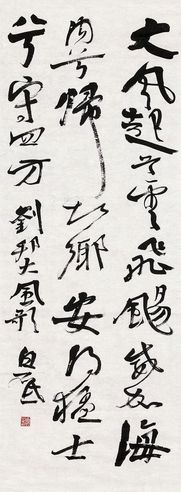 大風起兮雲飛颺威加海
內兮歸故鄉安得猛士
兮守四方 劉邦大風歌